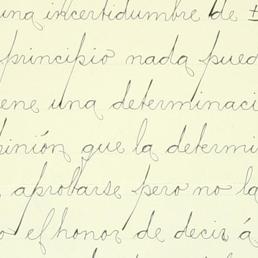 una incertidumbre de ±
principio nada pued
ene una determinaci
pinión que la determi
aprobarse pero no la
o el honor de decir á